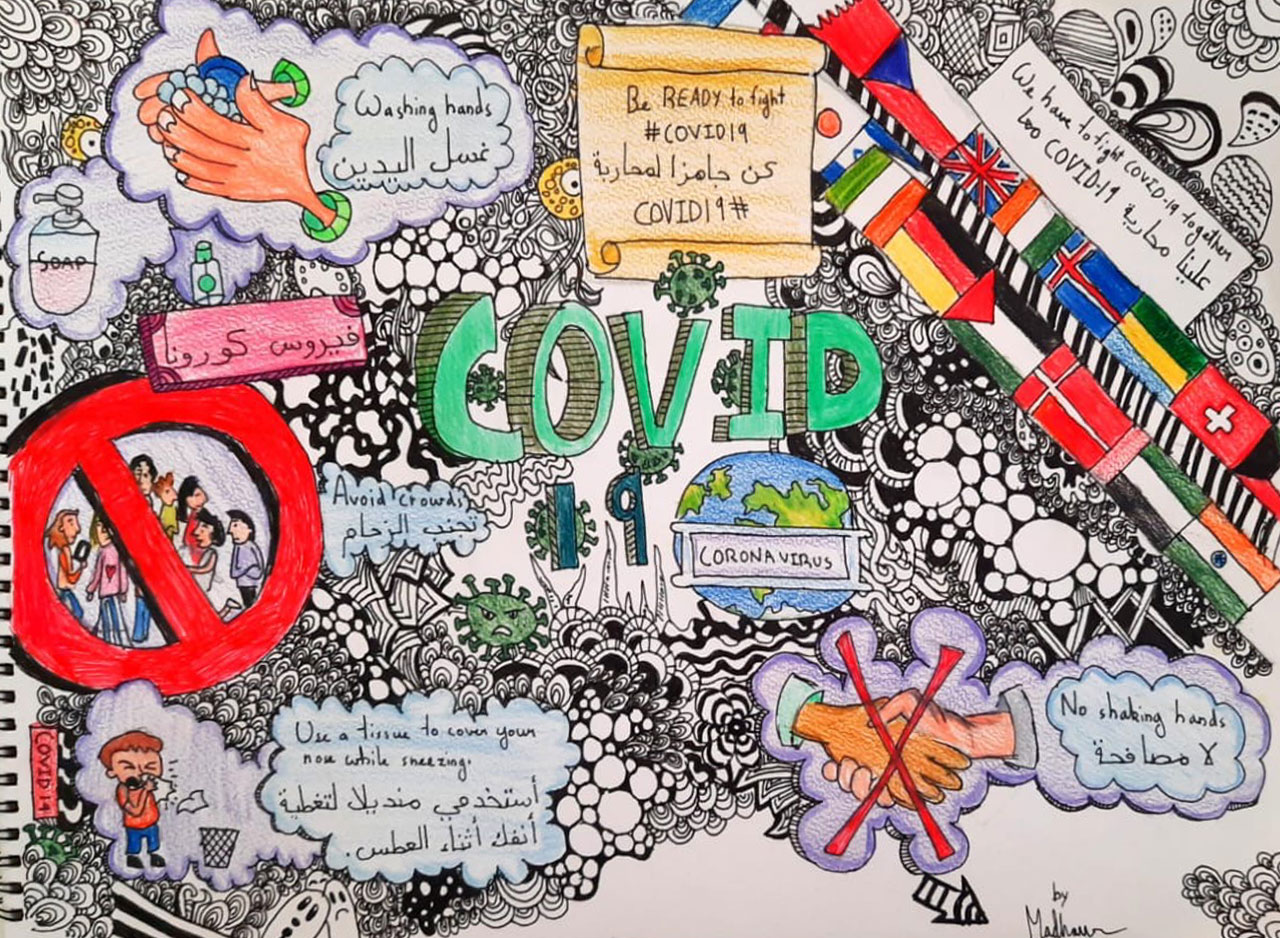 Washing hands
غسل اليدين
SOAP
Be READY to fight
#COVID19
كن جاهزا لمحاربة
COVID19#
We have to fight COVID-19 together
علينا محاربة COVID-19
فيروس كورونا
COVID
19
CORONAVIRUS
Avoid crowds
تجنب الزحام
Use a tissue to cover your
nose while sneezing.
أستخدمي منديلا لتغطية
أنفك أثناء العطس.
COVID 19
No shaking hands
لا مصافحة
by